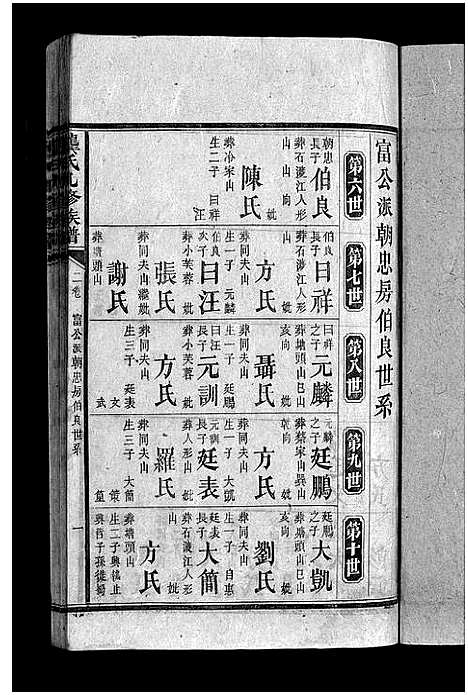 富公派朝忠房伯良世系
第六世
朝忠長子
伯良
葬石瀝江人形
山 山向
妣
陳氏
葬冷家山
生二子 曰祥
汪
第七世
伯良長子
曰祥
葬石瀝江人形
山
妣
方氏
生一子 元麟
伯良次子
曰汪
葬小芙蓉 妣
張氏
葬同夫山繼妣
謝氏
葬塘頭山
第八世
曰祥之子
元麟
葬塘頭山巳山
亥向 妣
聶氏
葬同夫山
生一子 廷鵬
曰汪長子
元訓
葬小芙蓉 妣
方氏
葬同夫山
生三子 廷表
文
武
第九世
元麟之子
廷鵬
葬蔡家山巽山
乾向 妣
方氏
葬同夫山
生一子 大凱
元訓長子
廷表
葬人形山 妣
羅氏
葬同夫山
生三子 大簡
策
篁
第十世
廷鵬之子
大凱
葬塘頭山巳山
亥向 妣
劉氏
葬同夫山
生一子 自惠
廷表長子
大簡
葬石瀝江人形
山 妣
方氏
葬塘頭山
生二子興
興哲子孫徙
龔氏九修族譜
二卷 富公派朝忠房伯良世系
一